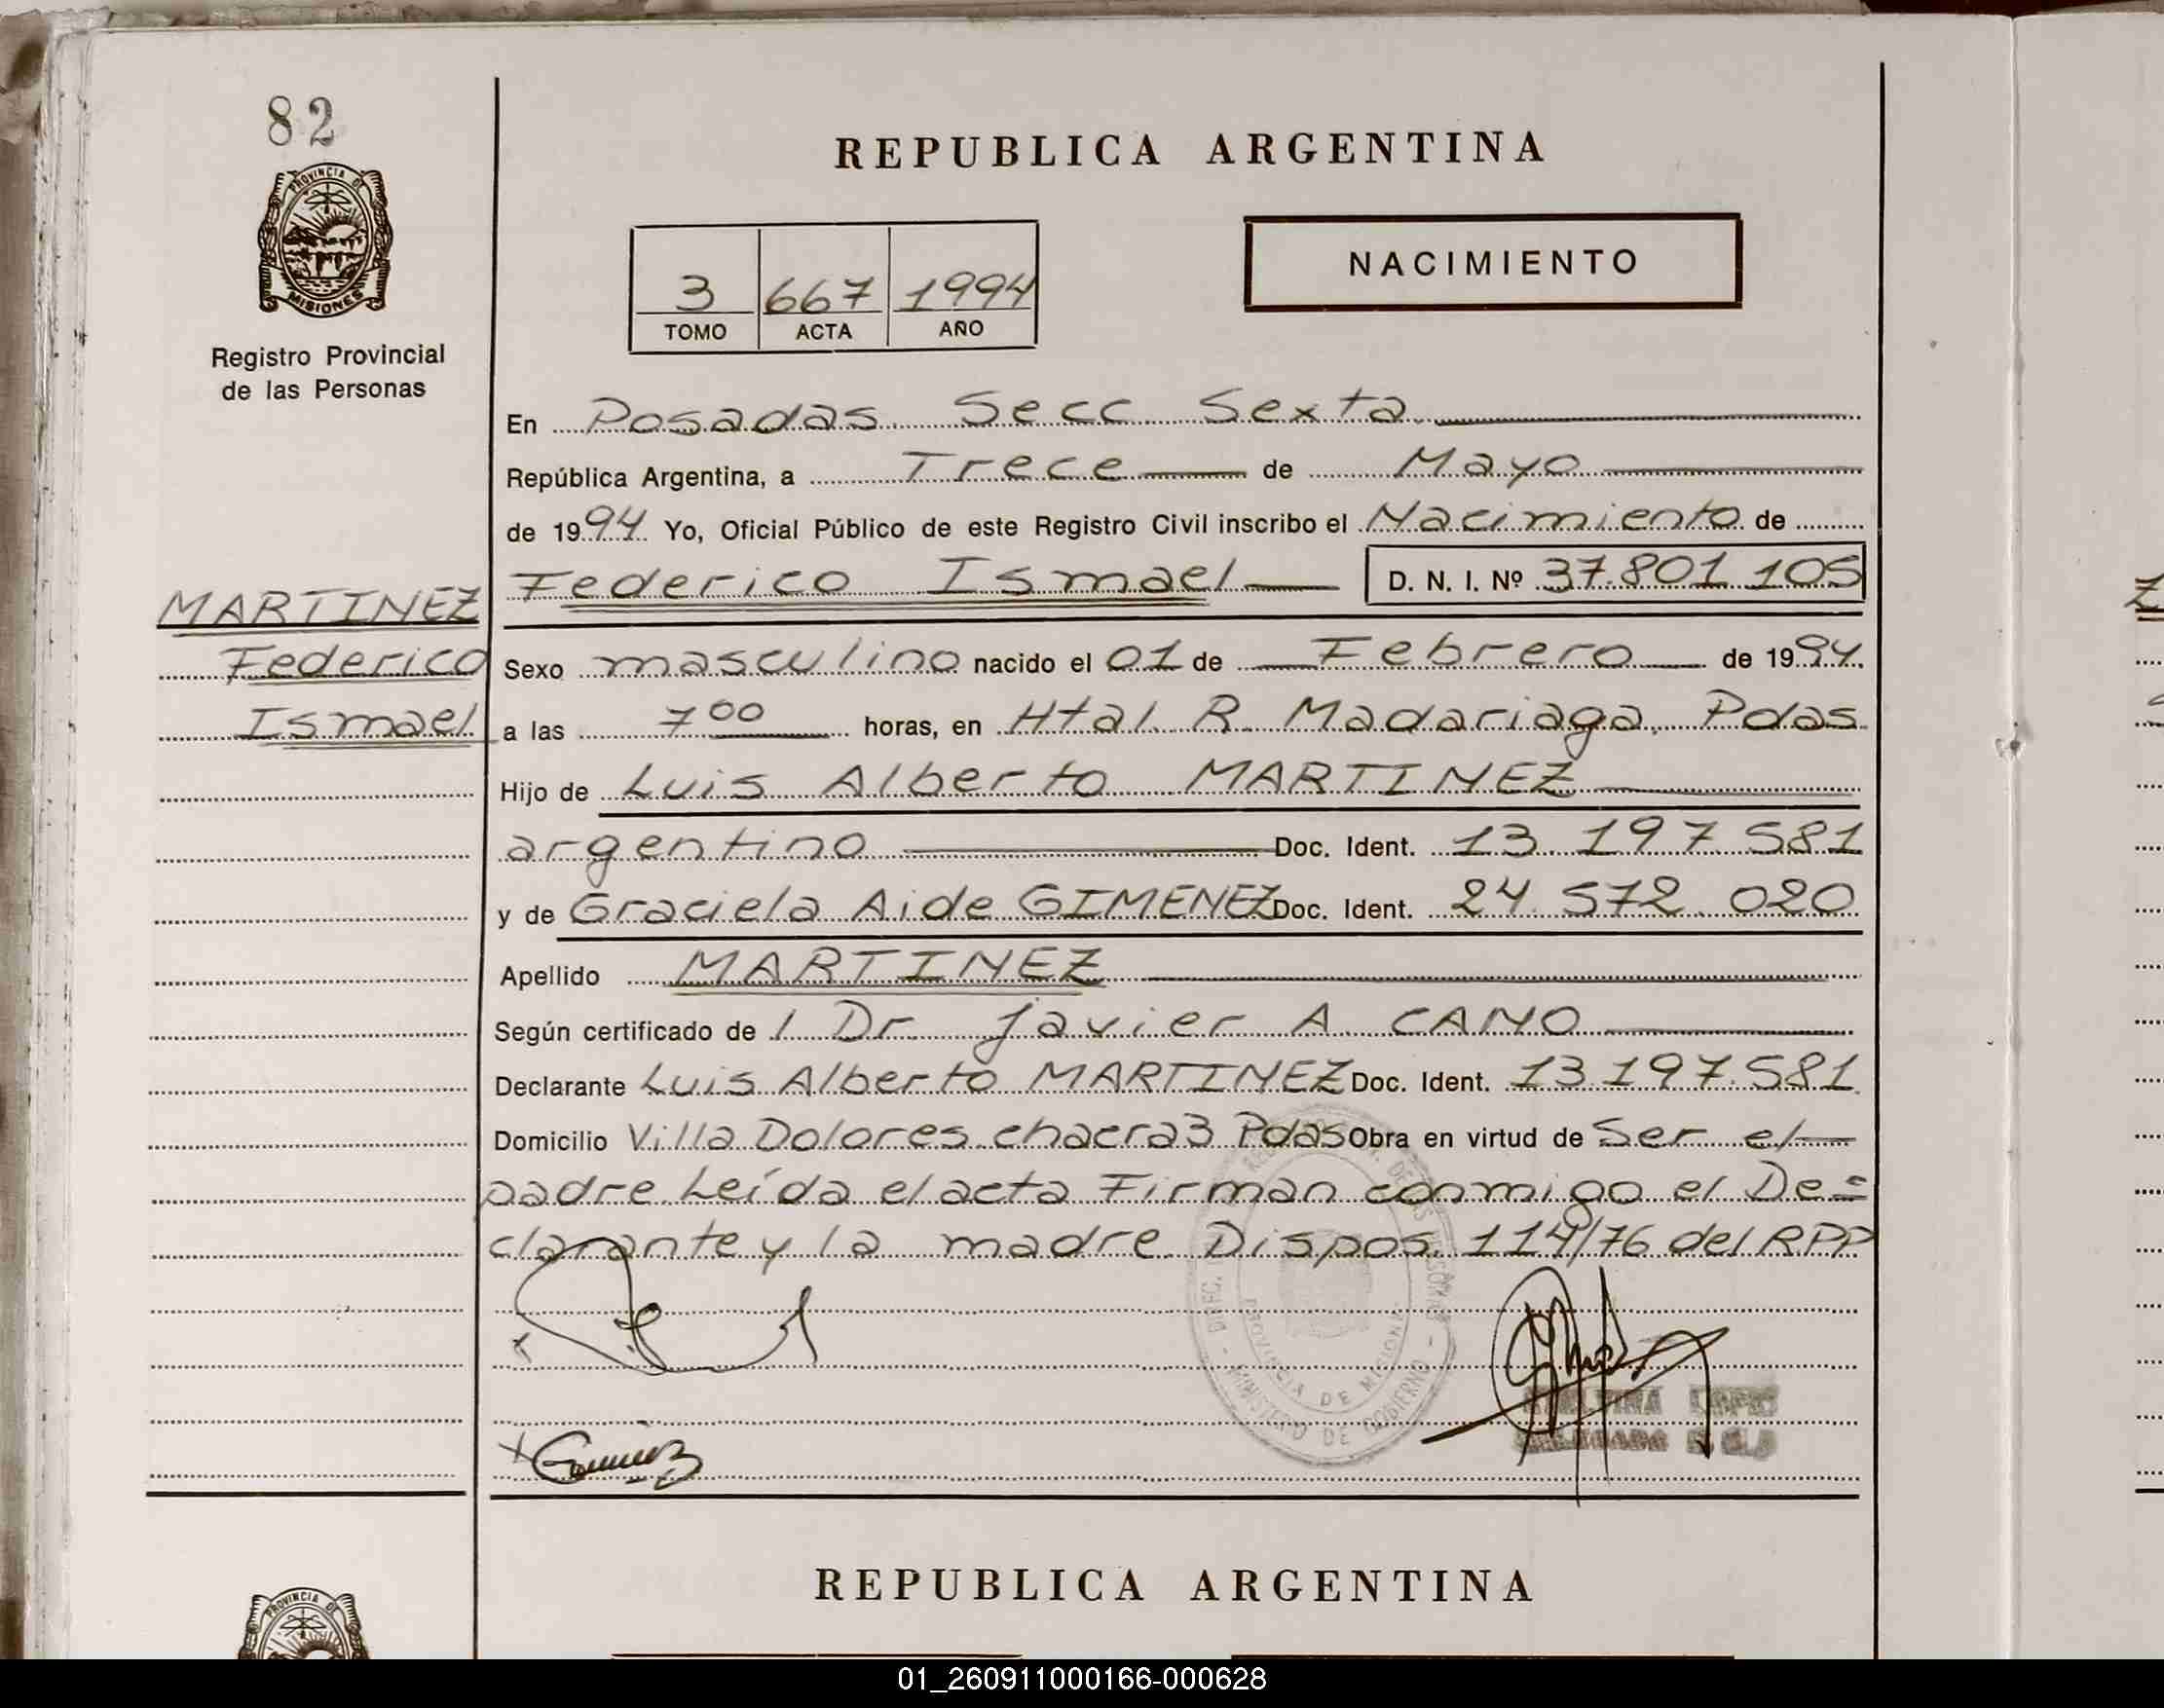 82
PROVINCIA DE
MISIONES
Registro Provincial
de las Personas
REPUBLICA ARGENTINA
3 667 1994
TOMO ACTA AÑO
NACIMIENTO
En Posadas Secc Sexta
República Argentina, a Trece de Mayo
de 1994 Yo, Oficial Público de este Registro Civil inscribo el Nacimiento de
Federico Ismael D. N. I. Nº 37.801 105
MARTINEZ
Federico
Ismael
Sexo masculino nacido el 01 de Febrero de 1994.
a las 7 00 horas, en Htal. R. Madariaga. Pdas
Hijo de Luis Alberto MARTINEZ
argentino Doc. Ident. 13.197 581
y de Graciela Aide GIMENEZ Doc. Ident. 24.572.020
Apellido MARTINEZ
Según certificado de / Dr. Javier A. CANO
Declarante Luis Alberto MARTINEZ Doc. Ident. 13.197.581.
Domicilio Villa Dolores chacra 3 Pdas Obra en virtud de Ser el
padre. Leída el acta Firman conmigo el De=
clarante y la madre. Dispos. 114/76 del RPP
PROVINCIA DE MISIONES
MINISTERIO DE GOBIERNO
REPUBLICA ARGENTINA
PROVINCIA DE
01_260911000166-000628